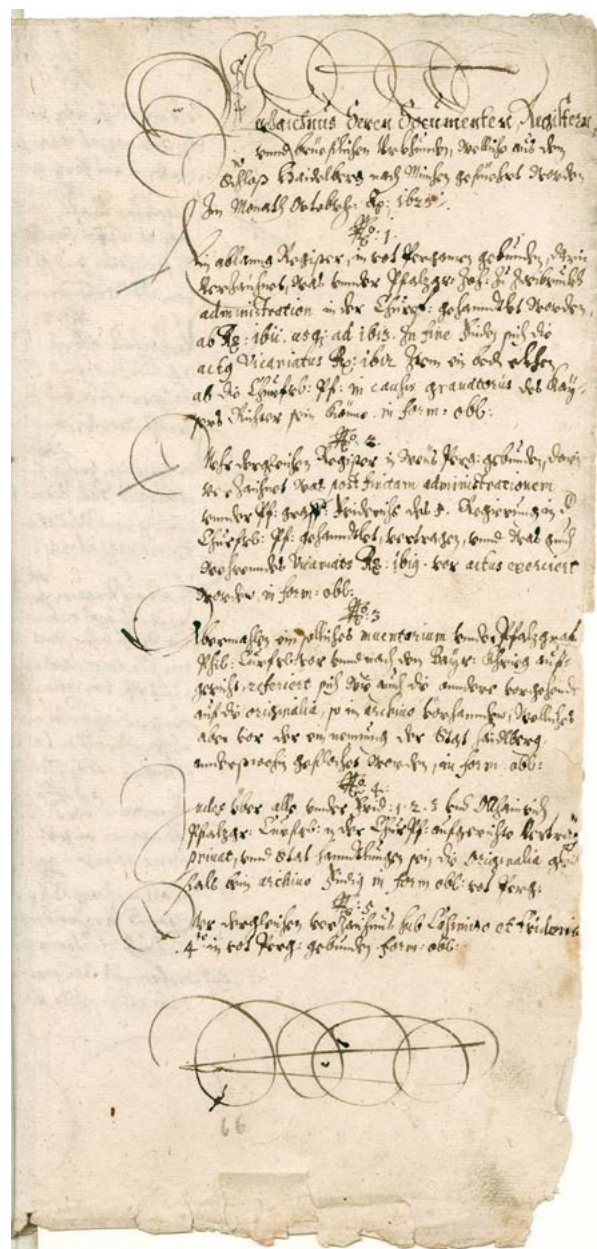 Verzaichnus deren Documenten, Registern
vnnd brieflichen Vrkhunden, welliche aus dem
Schloß Haidelberg nach München gefüehrt worden
Im Monath Octobrh: Ao: 1623.
No: 1.
Ein ablanng Register, in rot Pergamen gebunden, darin
verzaichnet, was vnnder Pfalzgr: Joh: zu Zweibruckh
administration in der Churpf: gehanndlet worden,
ab Ao: 1611. usq; ad 1613. In fine finden sich die
acta Vicariatus Ao: 1612
als die Churfrl: Pf: in causis grauatorius des Kay-
sers Richter sein könne. in form: obl:
No. 2.
Mehr dergleichen Register in weiß Perg: gebunden, darin
verzaichnet was post finitam administrationem
vnnder Pf: graff: Friderichs des 5. Regierung in d
Churfrl: Pf: gehanndlet, vertragen, vnnd was auch
Vicariats Ao: 1619. vor actus exerciert
worden, in form: obl:
No. 3
Abermahlen ein sollches inuentarium vnder Pfalzgraf
Phil: Churfrl: vor vnnd nach dem Bayr: Khrieg auf-
gericht, referiert sich wie auch die anndere vorgehende
auf die originalia, so in archiuo vorhannden, welliches
aber vor der ein nemung der Stat Haidlberg
annderstwohin geflechet worden, in form: obl:
No. 4.
Index über alle vnder Frid: 1. 2. 3 vnd Ottheinrich
Pfalzgr: Churfrl: in der ChurPf: aufgerichte Verträg
priuat, vnnd Stat hanndlungen sein die Originalia
fals beim archiuo findig in form obl: rot Perg:
No: 5
Mer dergleichen verzaichnus sub Casimiro et Friderico
4to in rot Perg: gebunden form: obl:
66